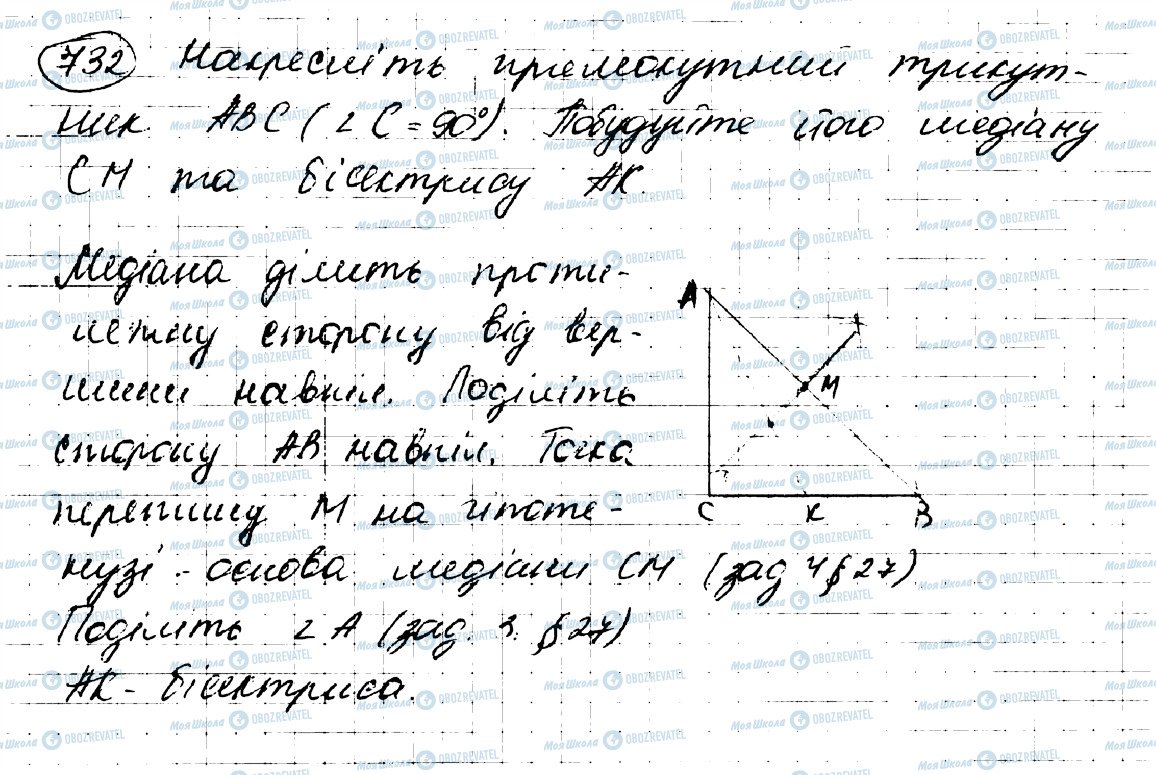 732 Накресліть прямокутний трикут-
ник ABC (∠C = 90°). Побудуйте його медіану
CM та бісектрису AK.
Медіана ділить проти-
лежну сторону від вер-
шини навпіл. Поділіть
сторону AB навпіл. Точка
перетину M на гіпоте-
нузі - основа медіани CM (зад 4 § 27)
Поділіть ∠A (зад. 3. § 27)
AK - бісектриса.
A
M
C K B